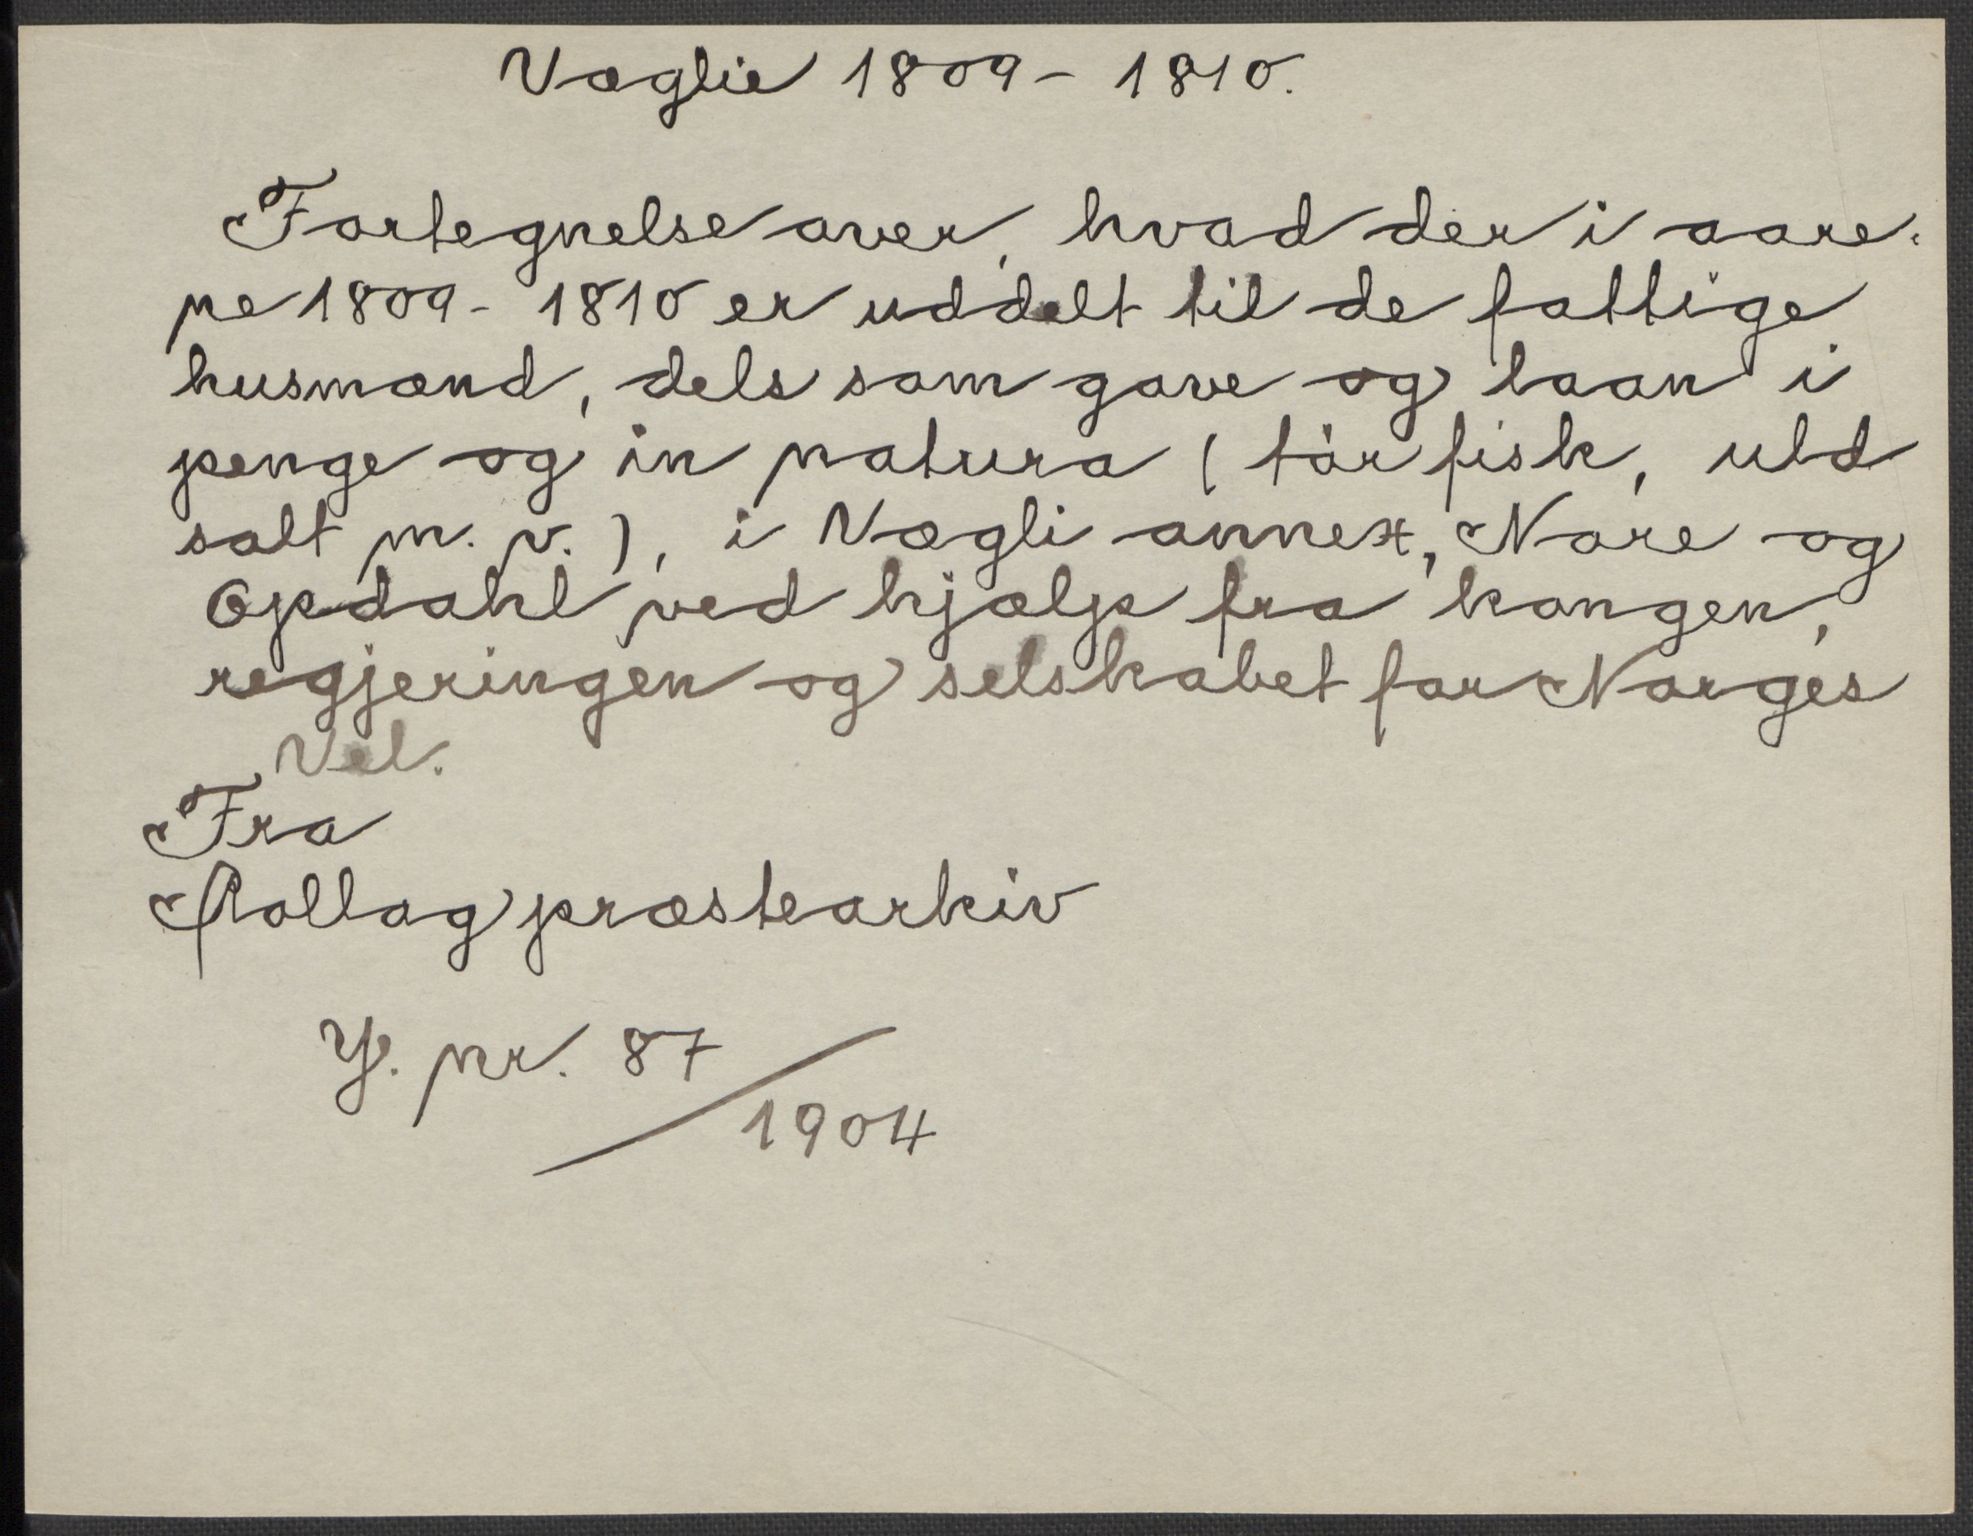 Væglie 1809 - 1810.
Fortegnelse over, hvad der i aare-
ne 1809 - 1810 er uddelt til de fattige
husmænd, dels som gave og laan i
penge og in natura (tör fisk, uld
salt m. v.), i Vægli annex, Nore og
Opdahl ved hjælp fra kongen,
regjeringen og selskabet for Norges
Vel.
Fra
Rollag præstearkiv
Y. nr. 87/1904